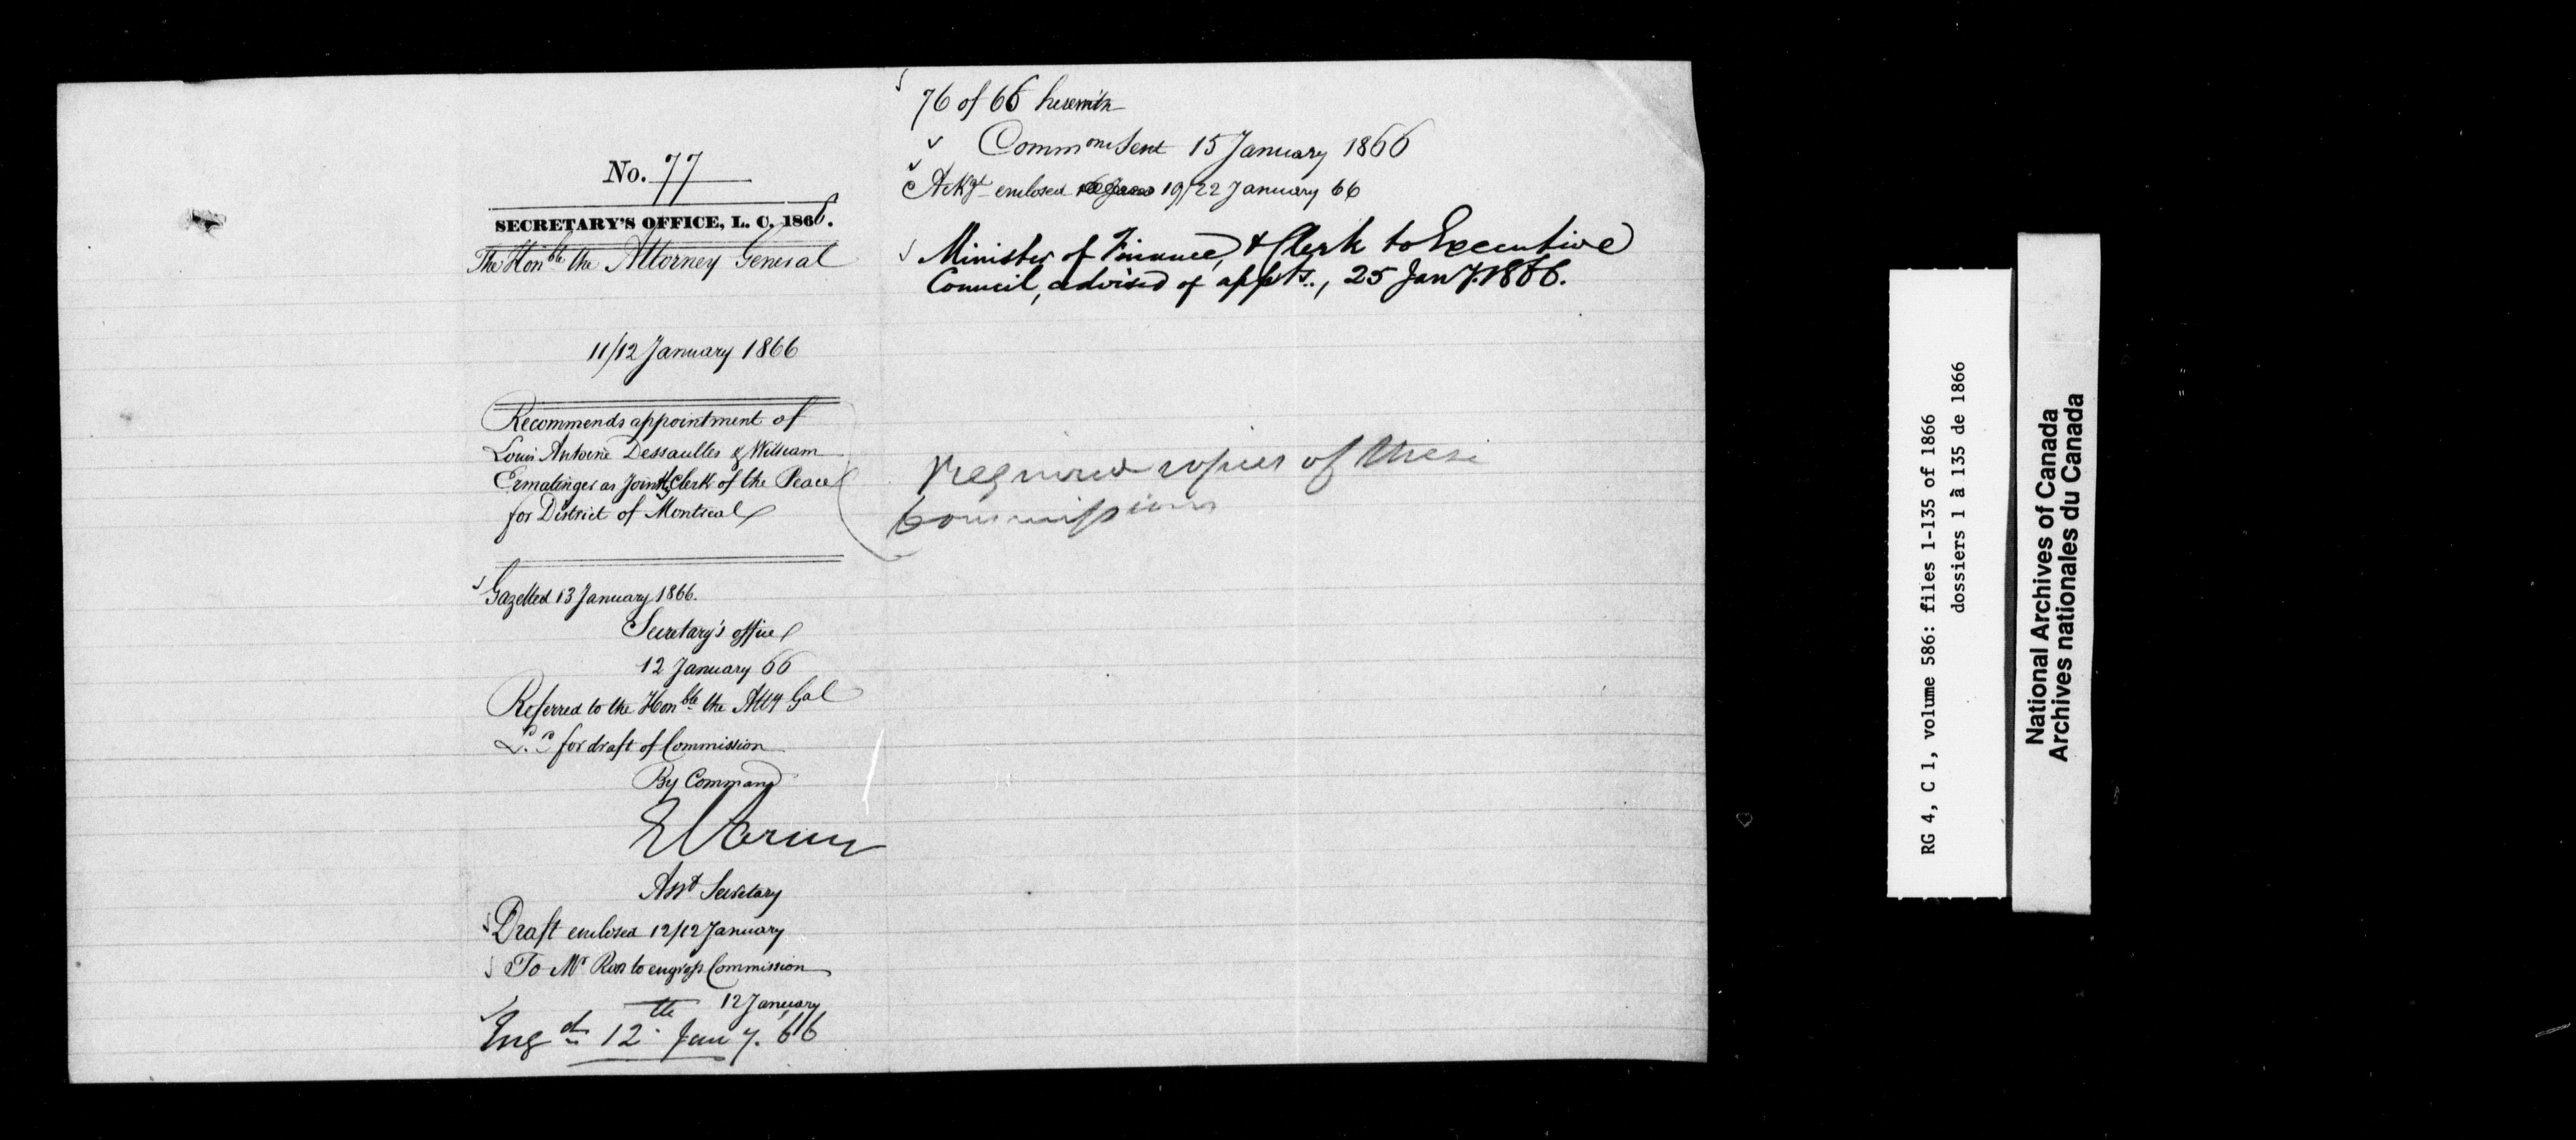 No. 77
SECRETARY'S OFFICE, L. C. 1866.
The Honble the Attorney General
11/12 January 1866
Recommends appointment of
Louis Antoine Dessaulles & William
Ermatinger as Joint Clerk of the Peace
for District of Montreal
Gazetted 13 January 1866.
Secretary's office
12 January 66
Referred to the Honble the Atty Gal
L. C for draft of Commission
By Command
Asst Secretary
Draft enclosed 12/12 January
To Mr Ross to engross Commission
12 January
Engd 12th Jany. 66
76 of 66 herewith
Commons sent 15 January 1866
Ackgt enclosed 19/22 January 66
Minister of Finance, & Clerk to Executive
Council, advised of appts., 25 Jany. 1866.
copies of these
Commissions
RG 4, C 1, volume 586: files 1-135 of 1866
dossiers 1 à 135 de 1866
National Archives of Canada
Archives nationales du Canada